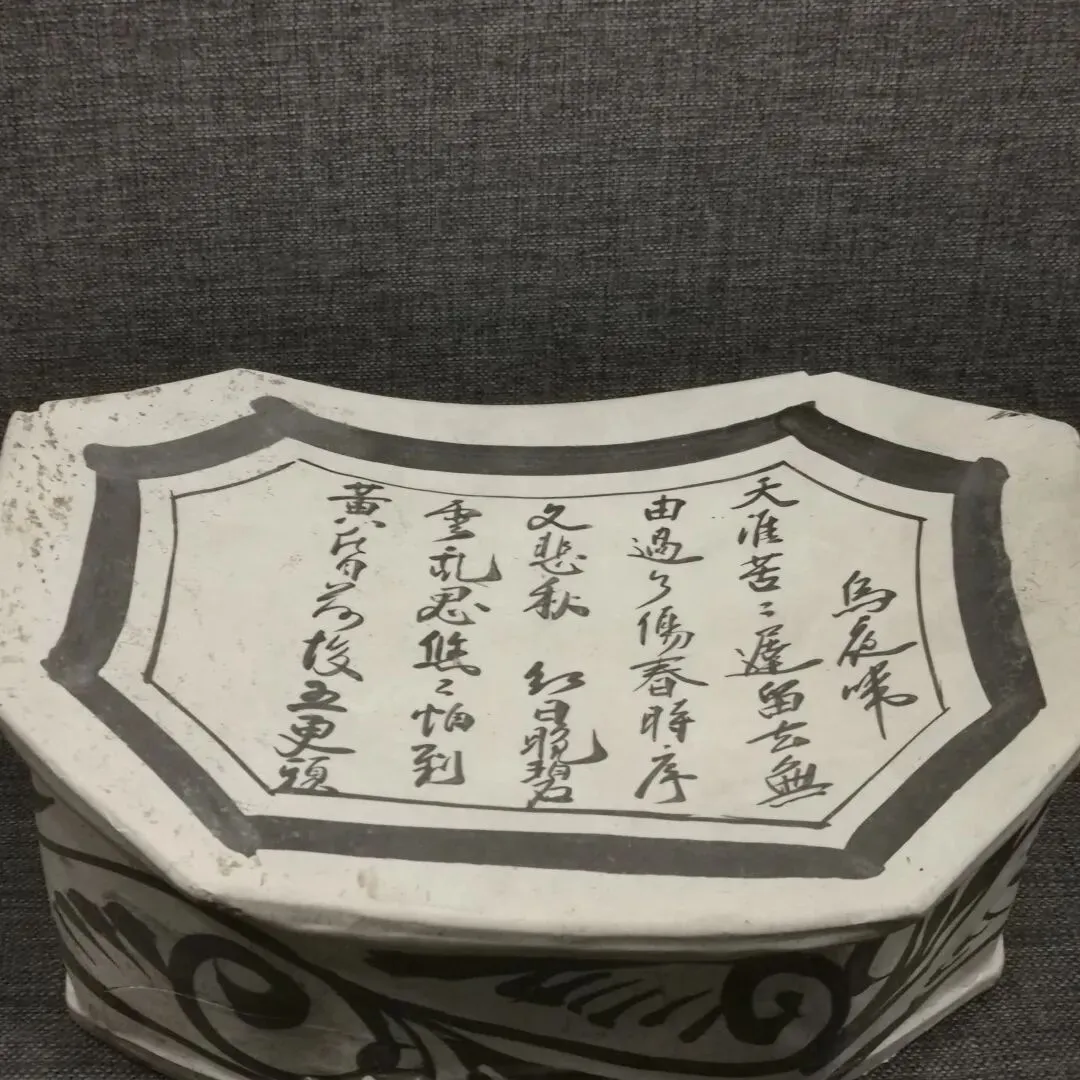 烏夜啼
天涯苦〻遲留去無
由過了傷春時序
文悲秋 紅日晚碧
雲亂思悠〻怕到
黃昏前後五更頭